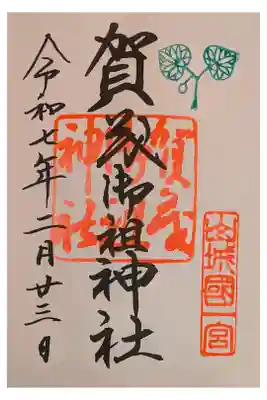 山城國一宮
賀茂御祖神社
賀茂
神社
令和七年二月廿三日